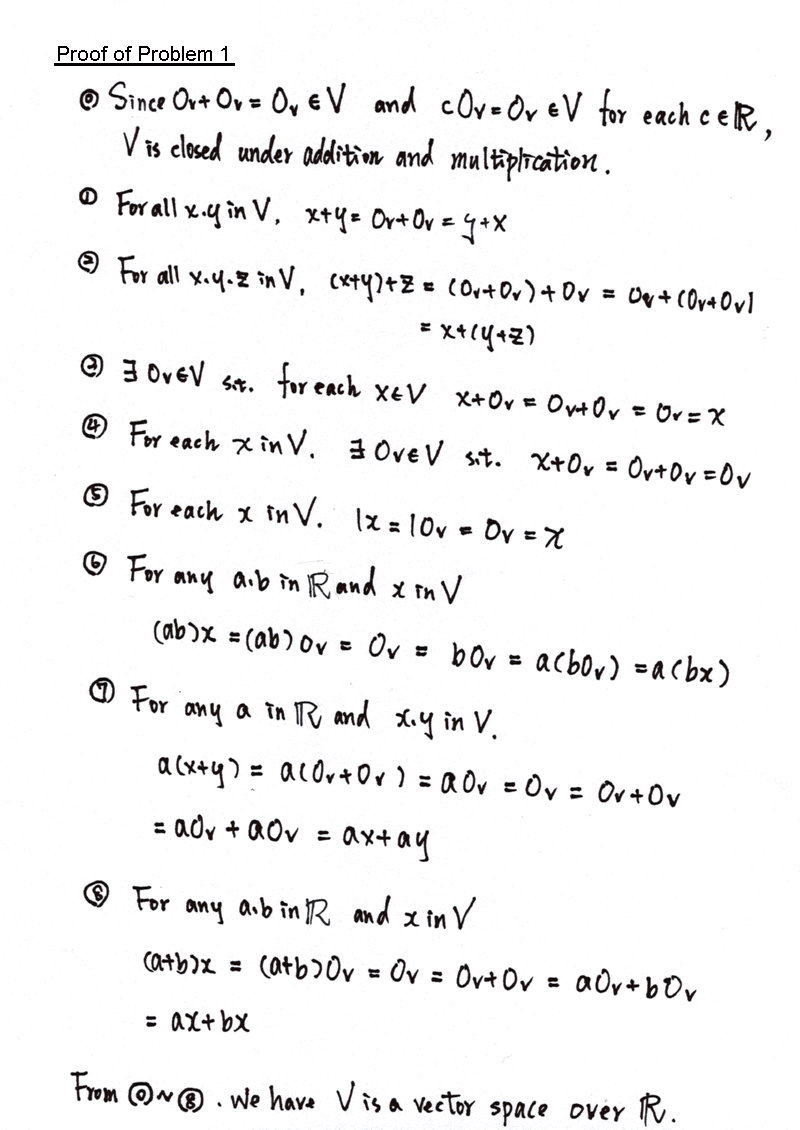 Proof of Problem 1
⓪ Since 0v + 0v = 0v ∈ V and c0v = 0v ∈ V for each c ∈ ℝ,
V is closed under addition and multiplication.
① For all x.y in V, x+y = 0v+0v = y+x
② For all x.y.z in V, (x+y)+z = (0v+0v)+0v = 0v+(0v+0v)
= x+(y+z)
③ ∃ 0v∈V s.t. for each x∈V x+0v = 0v+0v = 0v = x
④ For each x in V. ∃ 0v∈V s.t. x+0v = 0v+0v = 0v
⑤ For each x in V. 1x = 10v = 0v = x
⑥ For any a.b in ℝ and x in V
(ab)x = (ab)0v = 0v = b0v = a(b0v) = a(bx)
⑦ For any a in ℝ and x.y in V.
a(x+y) = a(0v+0v) = a0v = 0v = 0v+0v
= a0v + a0v = ax+ay
⑧ For any a.b in ℝ and x in V
(a+b)x = (a+b)0v = 0v = 0v+0v = a0v+b0v
= ax+bx
From ⓪~⑧. We have V is a vector space over ℝ.